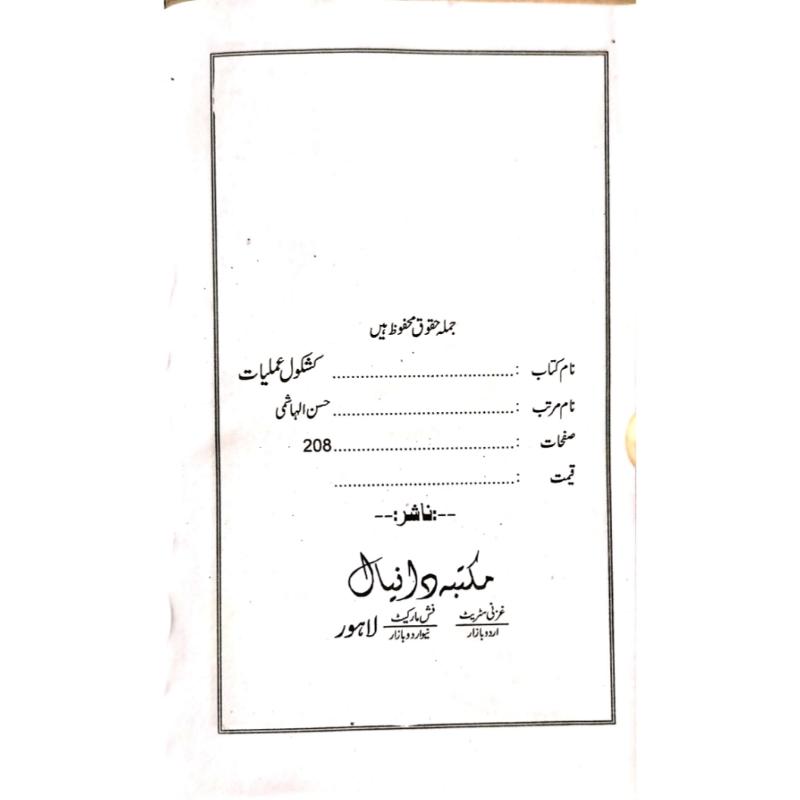 جملہ حقوق محفوظ ہیں
نام کتاب : ................................ کشکول عملیات
نام مرتب : ................................ حسن الہاشمی
صفحات : ................................ 208
قیمت : ................................
--:ناشر:--
مکتبہ دانیال
غزنی سٹریٹ اردو بازار فش مارکیٹ نیو اردو بازار لاہور